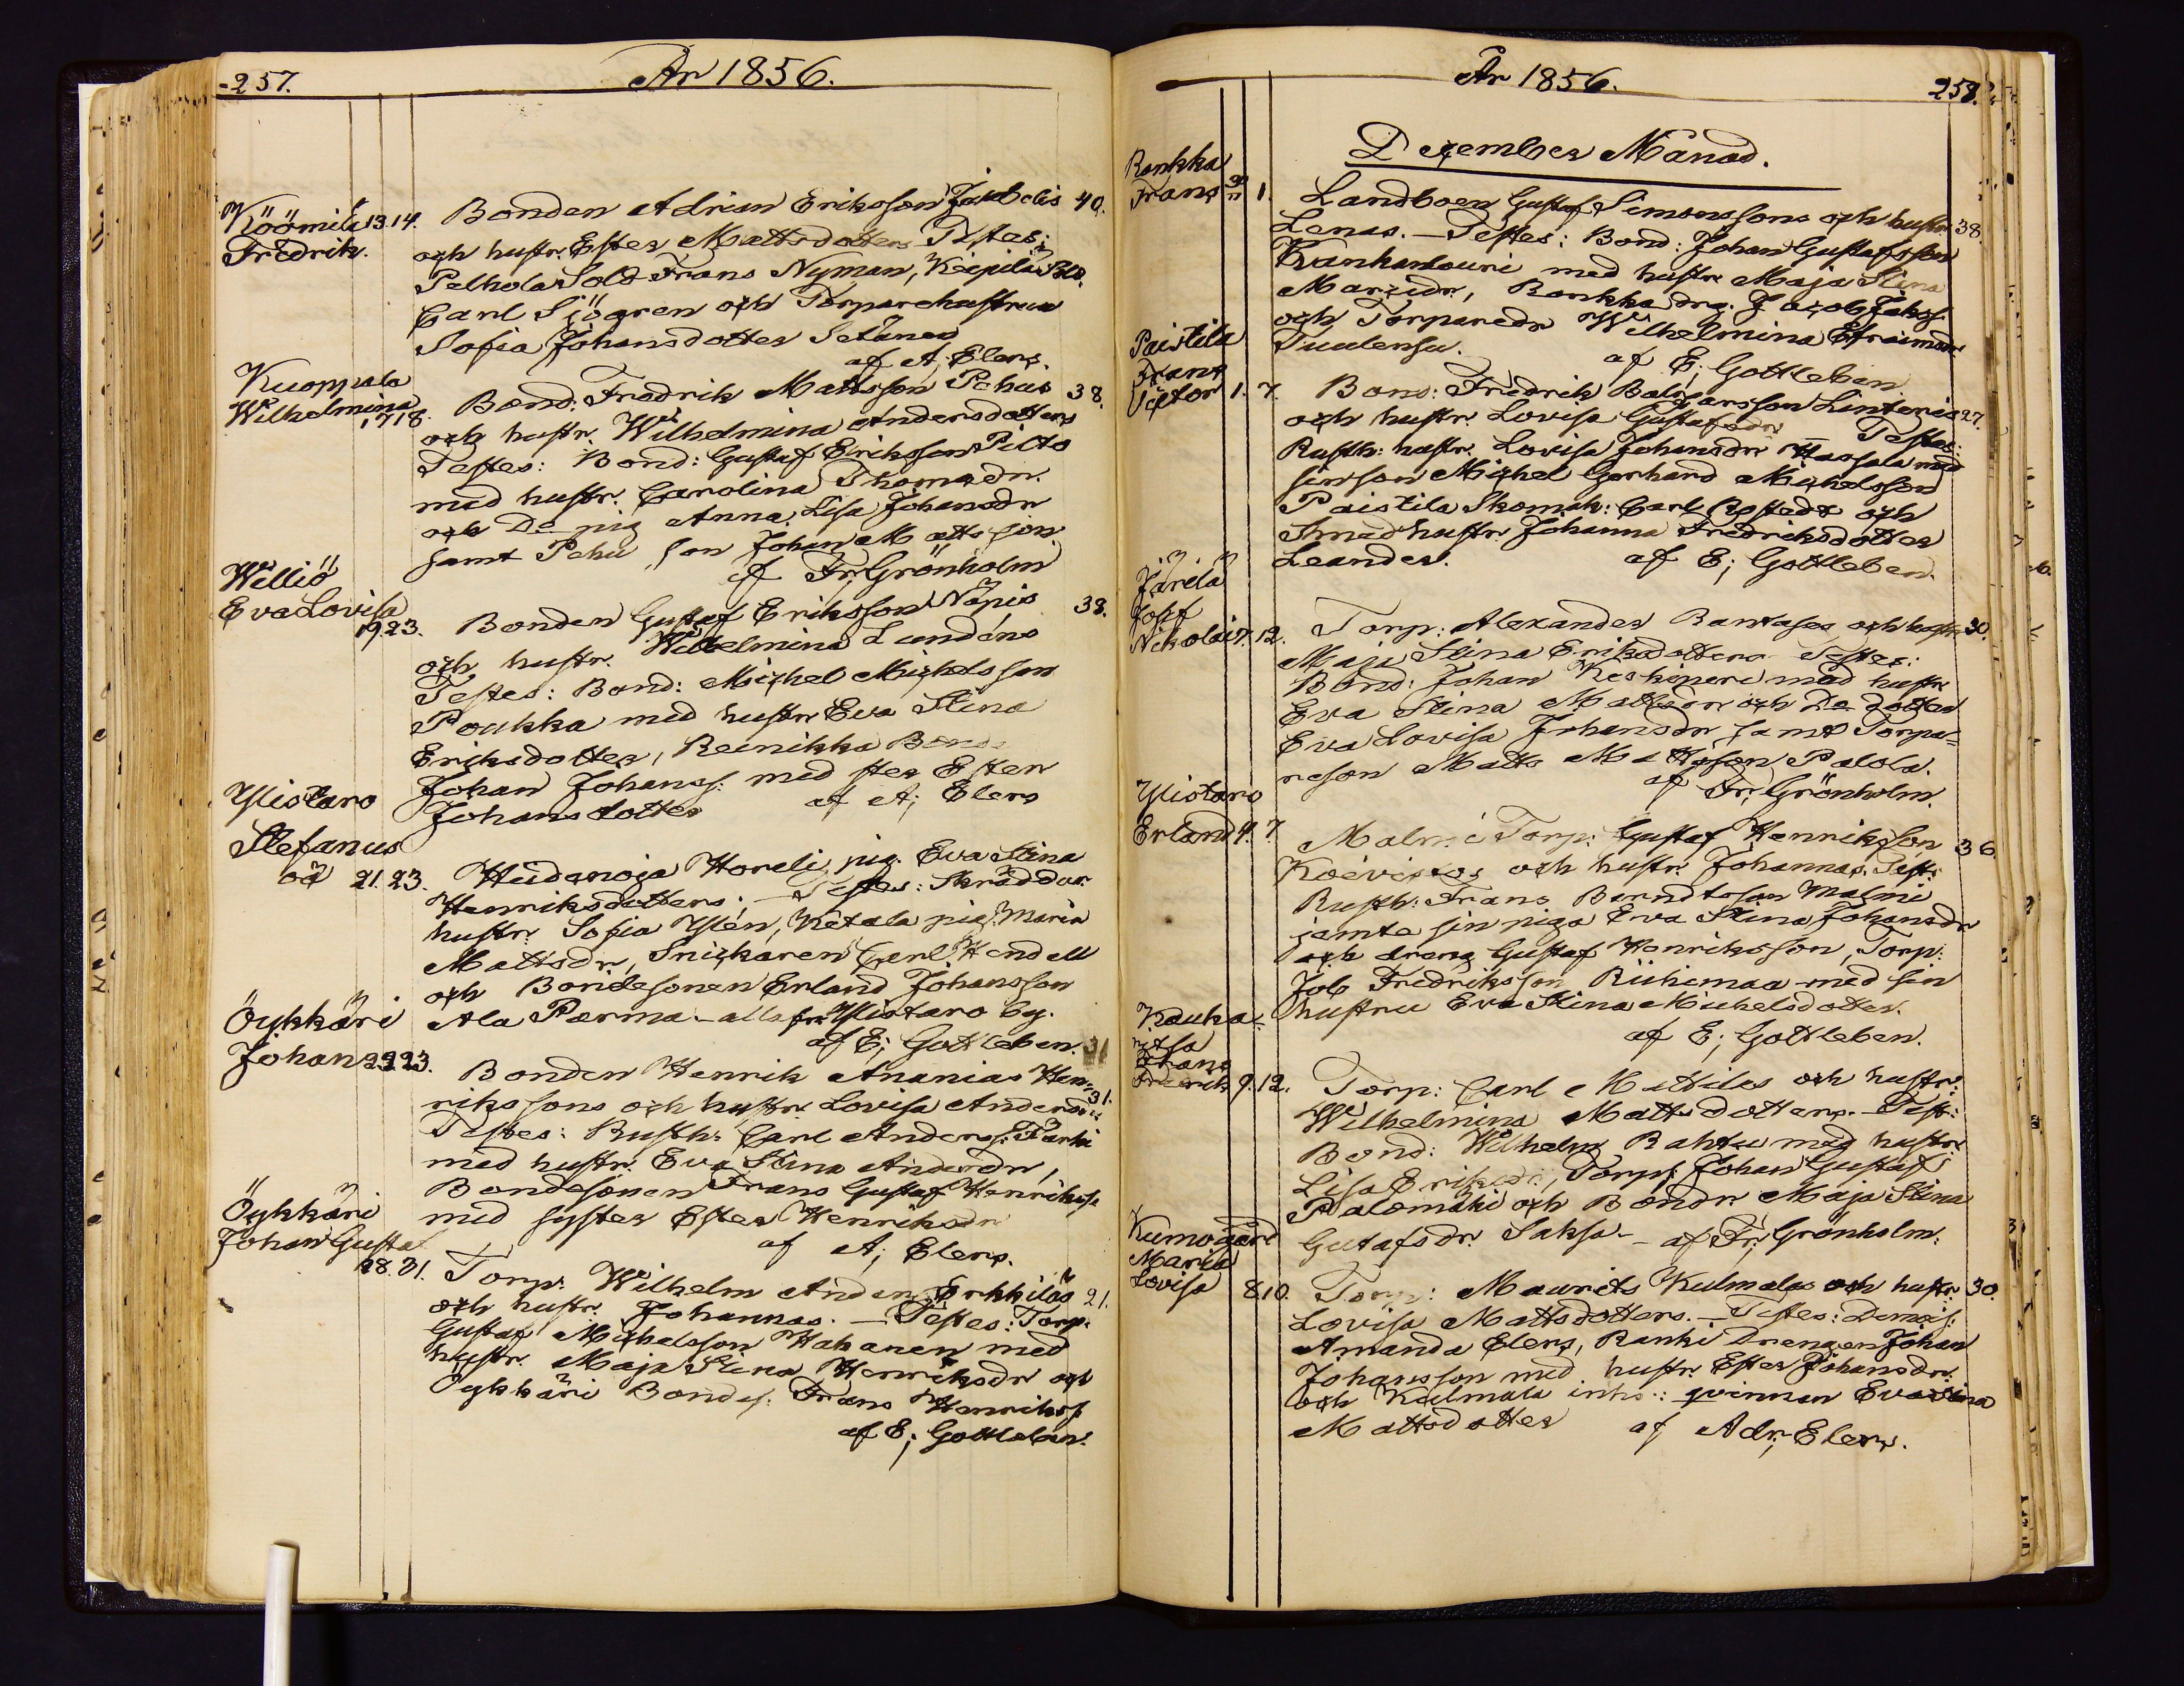 257.
År 1856.
Köömilä 13.14.
Fredrik.
Bonden Adrian Eriksson 40.
och hustr. Ester Mattsdotters Testes:
Pelhola Sold Frans Nyman, Keipilä Sold.
Carl Sjögren och Torparehustrun
Sofia Johansdotter Setänen
af A; Elers.
Kuoppala
Wilhelmina
17.18.
Bond: Fredrik Mattsson Pehus 38.
och hustr. Wilhelmina Andersdotters
Testes: Bond: Gustaf Eriksson
med hustr. Carolina Thomasdr.
och De pig Anna Lisa Johansdr
samt Pehu, son Johan Mattsson
af Fr; Grönholm
Williö
Eva Lovisa
19.23.
Bonden Gustaf Eriksson Näpis 38.
och hustr. Wilhelmina Lundéns
Testes: Bond: Michel Michelsson
Poukka med hustr Eva Stina
Eriksdotter, Reinikka Bond
Johan Johanss: med ster Ester
Johansdotter af A; Elers
Ylistaro
Stefanus
oä 21.23.
Hiidenoja Horeli, pig. Eva Stina
Henriksdotters. — Testes: Skräddar
hustr. Sofia Ylén, Ketala pig: Maria
Mattsdr, Snickaren Carl Hendell
och Bondesonen Erland Johansson
Ala Parma. — alla fr. Ylistaro by.
af E; Gottleben. 31
Öykkäri
Johan 22.23.
Bonden Henrik Ananias Hen-
rikssons och hustr. Lovisa Andersdrs 31.
Testes: Rusth: Carl Anderss: Färki
med hustr. Eva Stina Andersdr,
Bondesonen Frans Gustaf Henrikss
med syster Ester Henriksdr
af A; Elers.
Öykkäri
Johan Gustaf
28.31.
Torp: Wilhelm Anders Erkkiläs 21.
och hustr. Johannas. — Testes: Torp.
Gustaf Michelsson Hahanen med
hustr. Maja Stina Henriksdr och
Öykkäri Bondes: Frans Henrikss
af E; Gottleben.
År 1856.
258.
December Månad.
Rankka
Frans 30/11 1.
Landboen Gustaf Simonssons och hustr. 38.
Lenas. — Testes: Bond: Johan Gustafsson
Kvanhankouri med hustr Maja Stina
Marxidr, Rankka drg. Jacob Jakss.
och Torparedr Wilhelmina Efraimsdr
Tuulensu. af E; Gottleben
Paistila
Frans
Victor 1. 7.
Bond: Fredrik Baltzarsson Linteris 27.
och hustr. Lovisa Gustafsdrs Testes:
Rusth: hustr. Lovisa Johansdr Hassala med
sin son Michel Gerhard Michelsson
Paistila Skomak: Carl och
Smedhustr Johanna Fredriksdotter
Leander. af E; Gottleben.
Järilä
Josef
Nikolai 7. 12.
Torp: Alexander Rantases och hustr. 30.
Maja Stina Eriksdotters Testes:
Bond: Johan Keskineri med hustr
Eva Stina Mattsdr och De dotter
Eva Lovisa Johansdr, samt Torpa-
reson Matts Mattsson Palola.
af Fr; Grönholm.
Ylistaro
Erland 4. 7.
Malmi Torp: Gustaf Henriksson 36.
Koivistos och hustr. Johannas. Test:
Rusth: Frans Berndtsson Malmi
jemte sin piga Eva Stina Johansdr
och dräng Gustaf Henriksson, Torp:
Job Fredriksson Riihimaa med sin
hustru Eva Stina Michelsdotter.
af E; Gottleben.
Kauka-
ritsa
Frans
Fredrik 9.12.
Torp: Carl Mattilas och hustr:
Wilhelmina Mattsdotters. — Test:
Bond: Wilhelm Rahtu med hustr.
Lisa Eriksdr, Torp: Johan Gustaf
Palomäki och Bondr Maja Stina
Gustafsdr. Saksa — af Fr; Grönholm.
Kumogård
Maria
Lovisa 8.10.
Torp: Maurits Kulmalas och hustr. 30.
Lovisa Mattsdotters. — Testes: Demois:
Amanda Elers, Ranki Drengen Johan
Johansson med hustr. Ester Johansdr.
och Kulmala inhs: qvinnan Eva Stina
Mattsdotter af Adr; Elers.